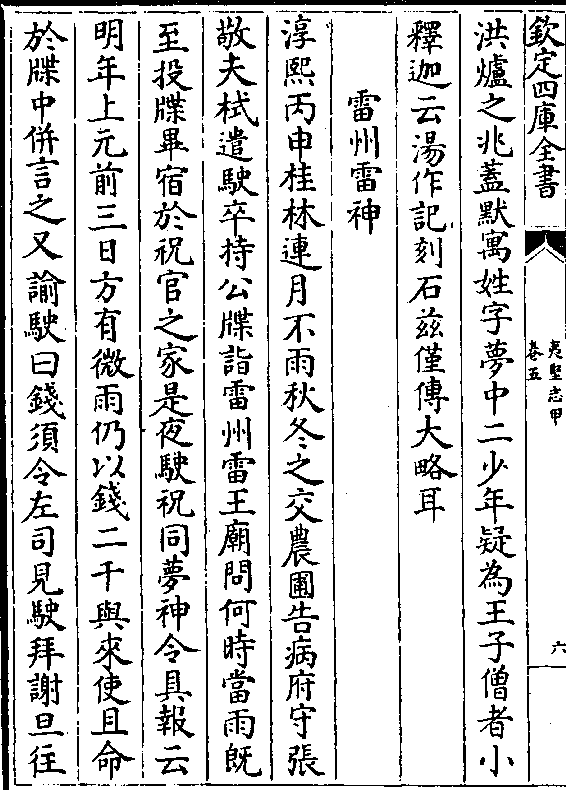 欽定四庫全書
夷堅志甲
卷五
六
洪爐之兆蓋默寓姓字夢中二少年疑為王子僧者小
釋迦云湯作記刻石兹僅傳大略耳
雷州雷神
淳熙丙申桂林連月不雨秋冬之交農圃告病府守張
敬夫栻遣駛卒持公牒詣雷州雷王廟問何時當雨旣
至投牒畢宿於祝官之家是夜駛祝同夢神令具報云
明年上元前三日方有微雨仍以錢二千與來使且命
於牒中併言之又諭駛曰錢須令左司見駛拜謝旦往